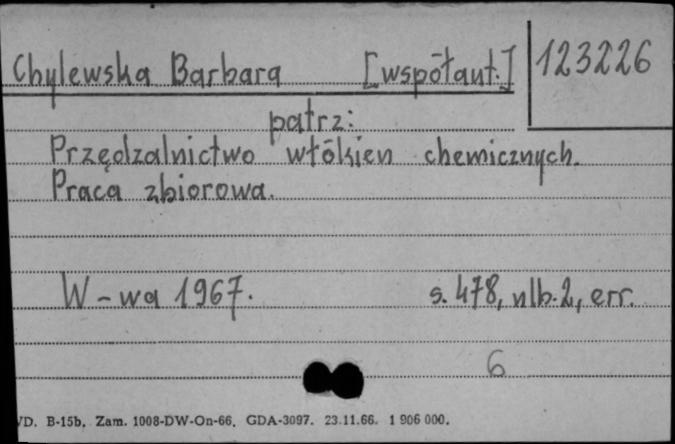 Chylewska Barbara [współaut.] 123226
patrz:
Przędzalnictwo włókien chemicznych.
Praca zbiorowa.
W-wa 1967. s. 478, nlb. 2, err.
6
VD. B-15b, Zam. 1008-DW-On-66. GDA-3097. 23.11.66. 1 906 000.